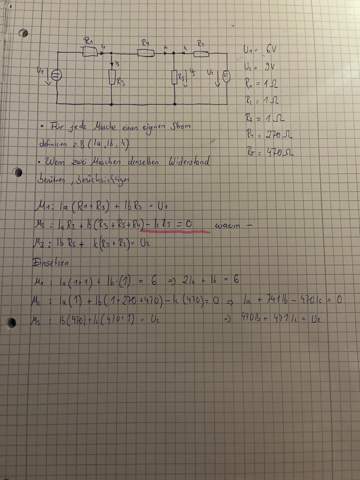 R1 R4 R2
U1 R3 R5 U2
U1 = 6V
U2 = 9V
R1 = 1Ω
R2 = 1Ω
R3 = 1Ω
R4 = 270Ω
R5 = 470Ω
• Für jede Masche einen eigenen Strom
definieren z.B (Ia, Ib, Ic)
• Wenn zwei Maschen denselben Widerstand
berühren, berücksichtigen
M1: Ia(R1+R3) + Ib R3 = U1
M2: Ia R3 + Ib(R3+R5+R4) - Ic R5 = 0 warum -
M3: Ib R5 + Ic(R5+R2) = U2
Einsetzen
M1: Ia(1+1) + Ib(1) = 6 ⇒ 2Ia + Ib = 6
M2: Ia(1) + Ib(1+270+470) - Ic(470) = 0 ⇒ Ia + 741Ib - 470Ic = 0
M3: Ib(470) + Ic(470+1) = U2 ⇒ 470Ib + 471Ic = U2